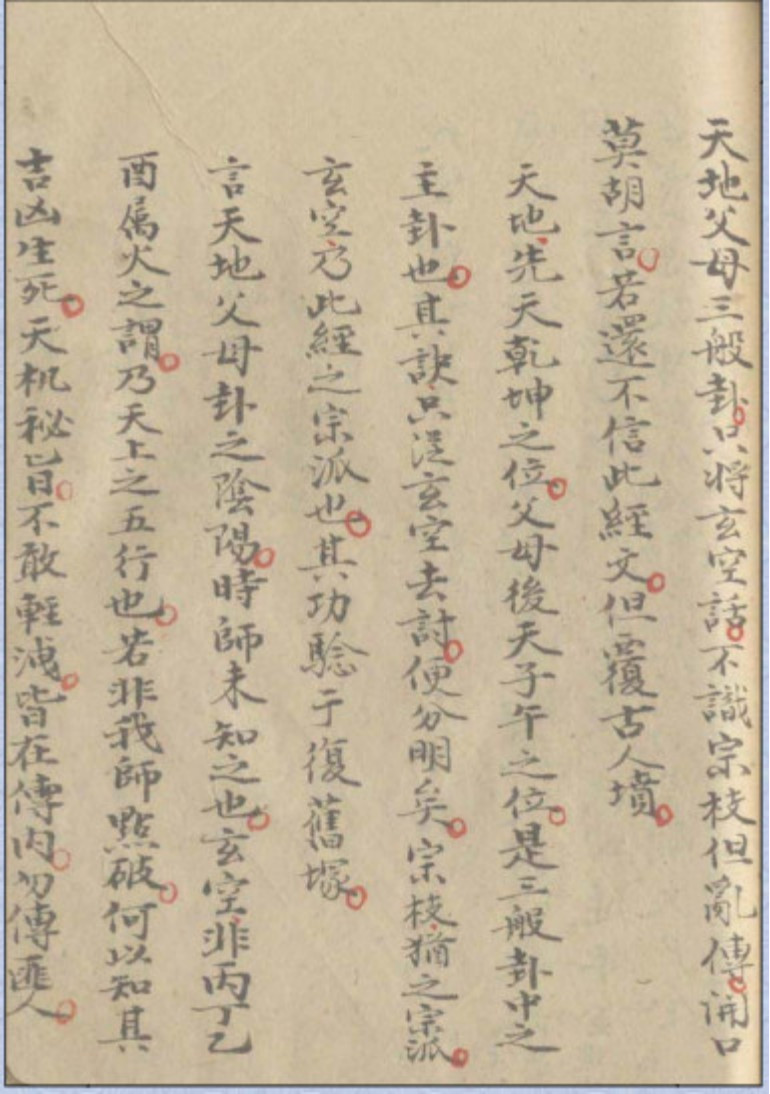 天地父母三般卦。只將玄空話。不識宗枝但亂傳。開口
莫胡言。若還不信此經文。但覆古人墳。
天地、先天乾坤之位。父母後天子午之位。是三般卦中之
主卦也。其訣只從玄空去討。便分明矣。宗枝猶之宗派。
玄空乃此經之宗派也。其功騐于復舊塚。
言天地父母卦之陰陽。時師未知之也。玄空非丙丁乙
酉属火之謂。乃天上之五行也。若非我師點破。何以知其
吉凶生死。天机秘旨。不敢輕洩。皆在傳内。勿傳匪人。